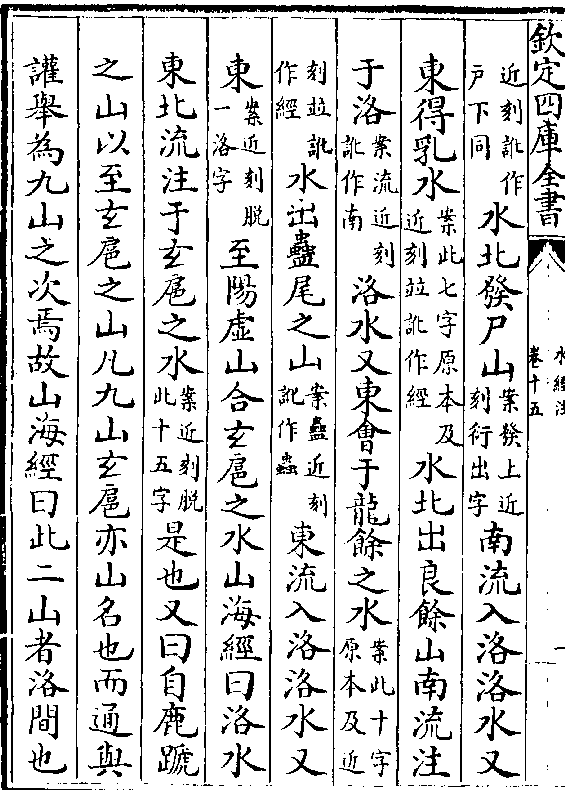 欽定四庫全書
水經注
卷十五
近刻訛作戸下同水北發尸山案發上近刻衍出字南流入洛洛水又
東得乳水案此七字原本及近刻並訛作經水北出良餘山南流注
于洛案流近刻訛作南洛水又東會于龍餘之水案此十字原本及近
刻並訛作經水出蠱尾之山案蠱近刻訛作蟲東流入洛洛水又
東案近刻脫一洛字至陽虛山合玄扈之水山海經曰洛水
東北流注于玄扈之水案近刻脫此十五字是也又曰自鹿蹏
之山以至玄扈之山凡九山玄扈亦山名也而通與
讙舉為九山之次焉故山海經曰此二山者洛間也